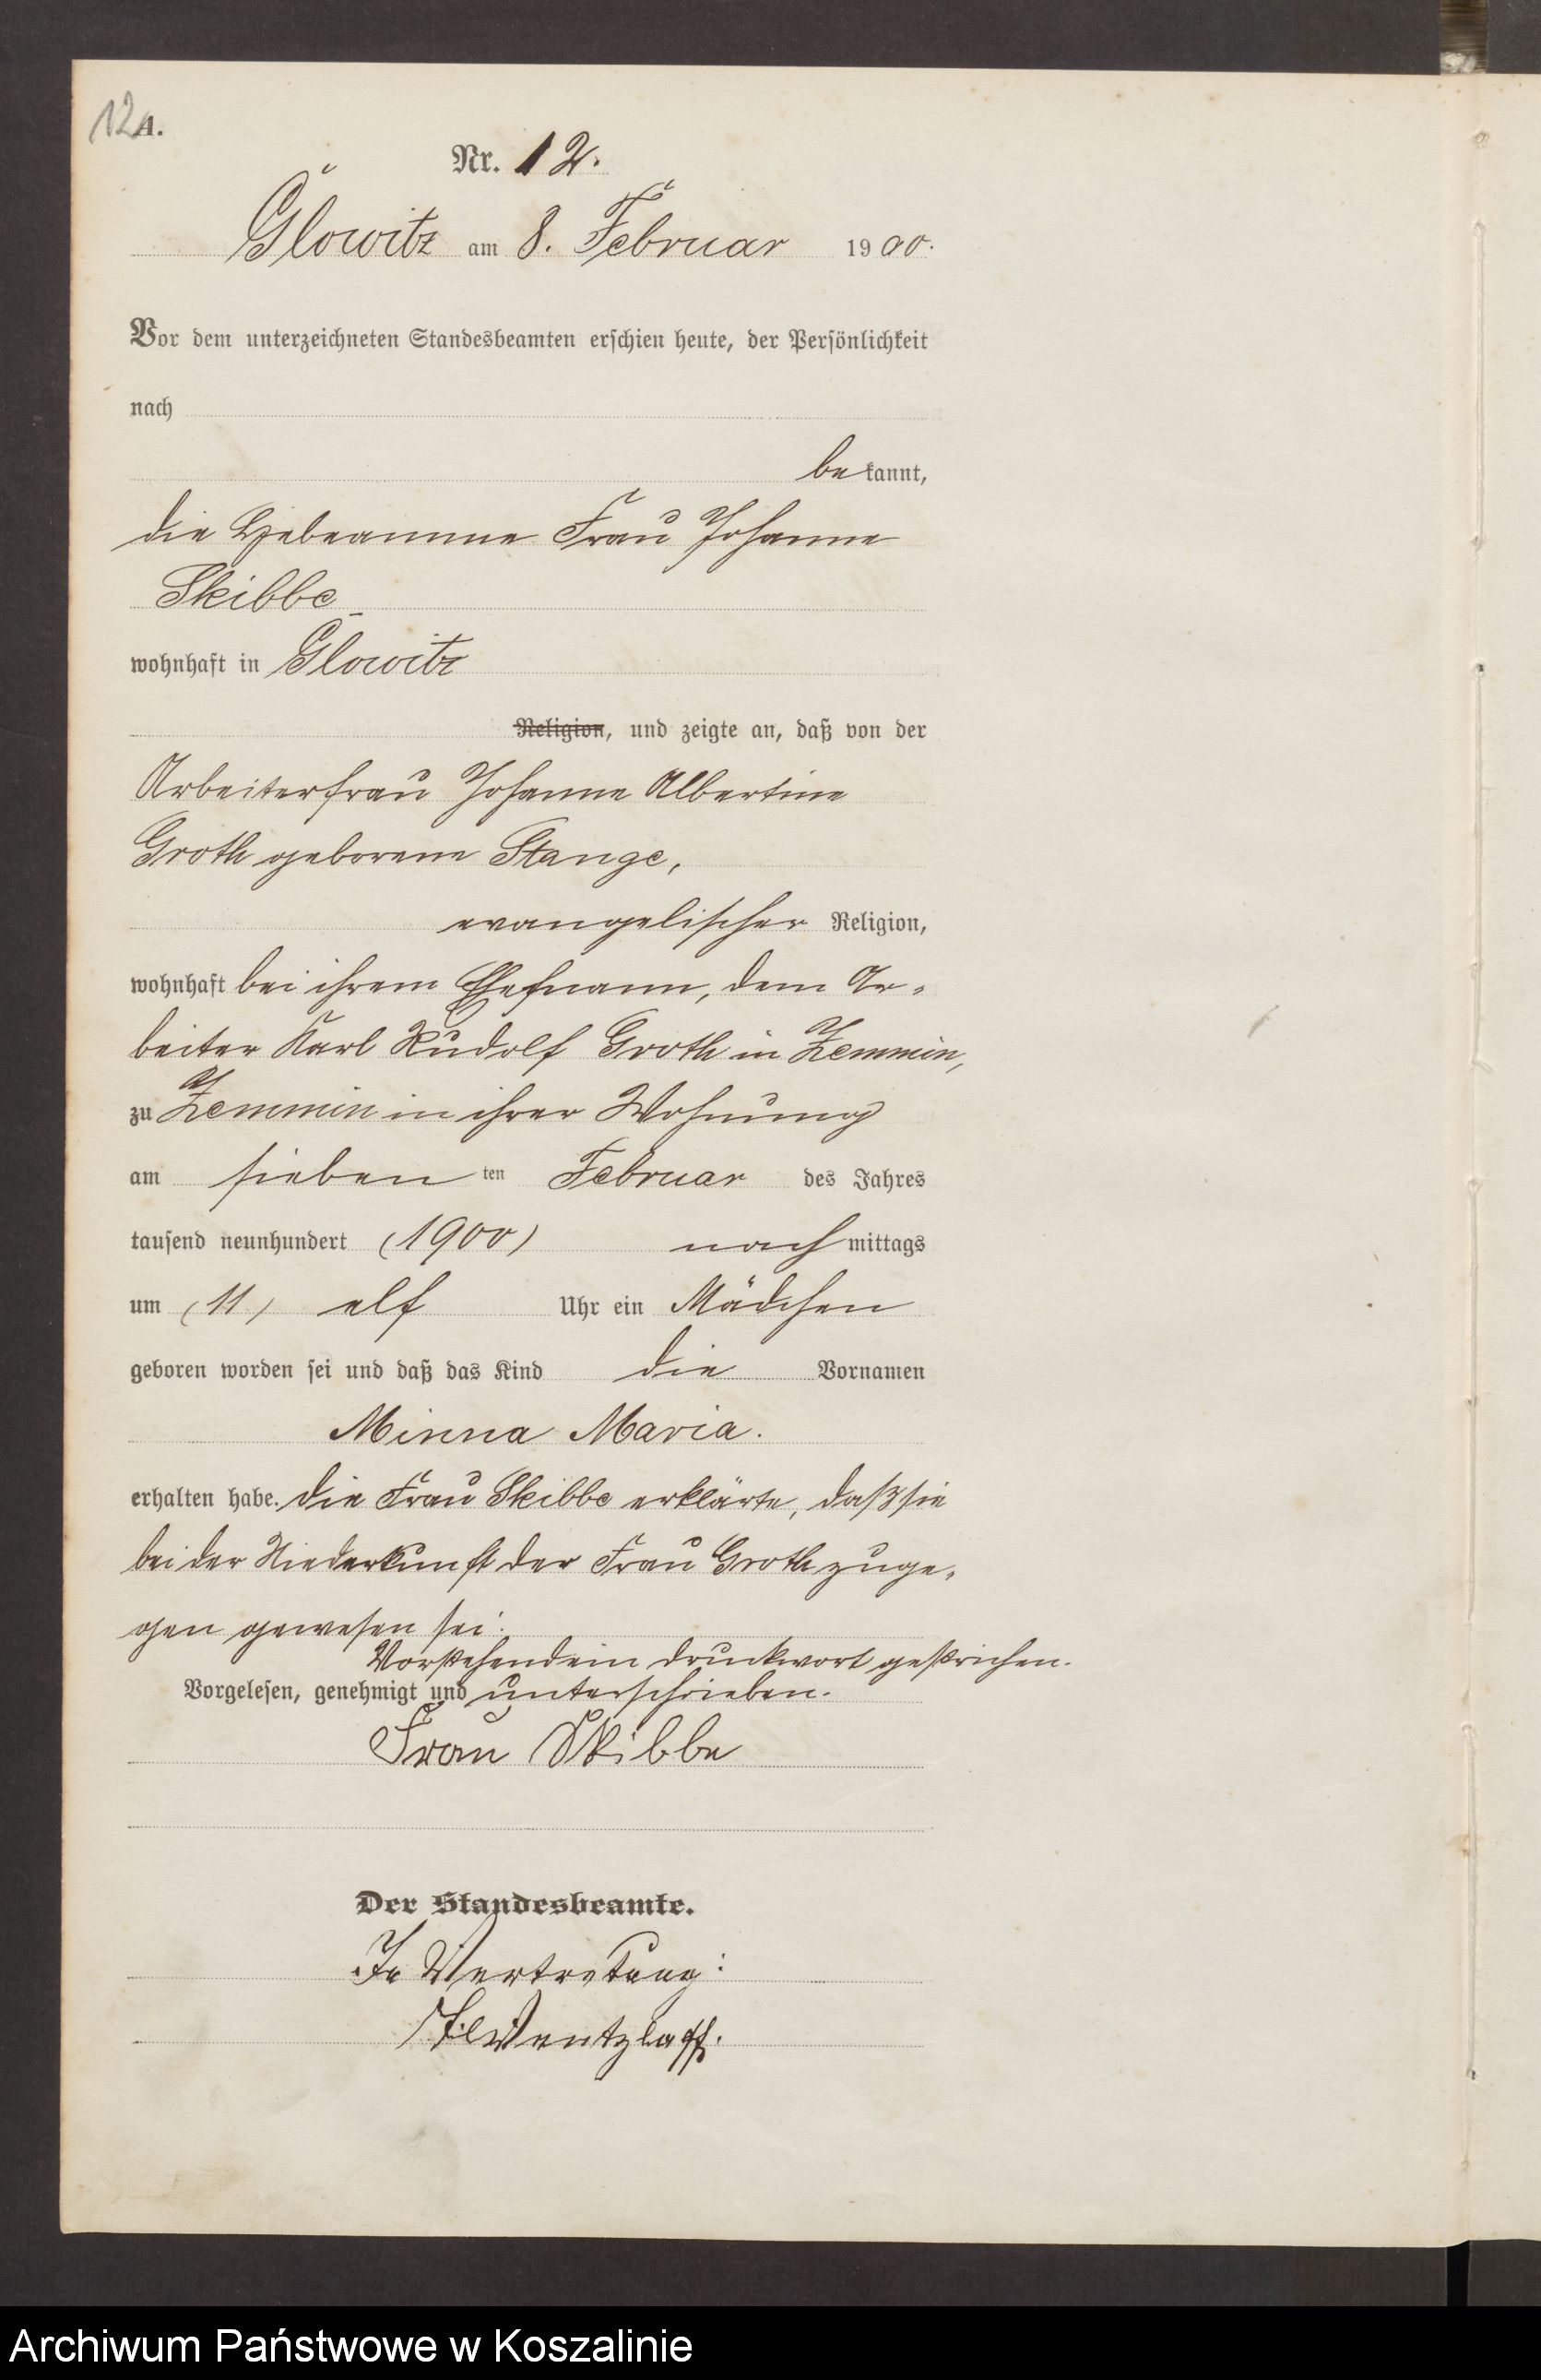 12
A.
Nr. 12.
Glowitz am 8. Februar 1900.
Vor dem unterzeichneten Standesbeamten erschien heute, der Persönlichkeit
nach
bekannt,
die Hebeamme Frau Johanne
Skibbe
wohnhaft in Glowitz
Religion, und zeigte an, daß von der
Arbeiterfrau Johanne Albertine
Groth geborene Stange,
evangelischer Religion,
wohnhaft bei ihrem Ehemann, dem Ar-
beiter Karl Rudolf Groth in Zemmin,
zu Zemmin in ihrer Wohnung
am siebenten Februar des Jahres
tausend neunhundert (1900) nachmittags
um (11) elf Uhr ein Mädchen
geboren worden sei und daß das Kind die Vornamen
Minna Maria.
erhalten habe. Die Frau Skibbe erklärte, daß sie
bei der Niederkunft der Frau Groth zuge-
gen gewesen sei.
Vorstehend ein Druckwort gestrichen.
Vorgelesen, genehmigt und unterschrieben.
Frau Skibbe
Der Standesbeamte.
In Vertretung:
Wentzlaff.
Archiwum Państwowe w Koszalinie